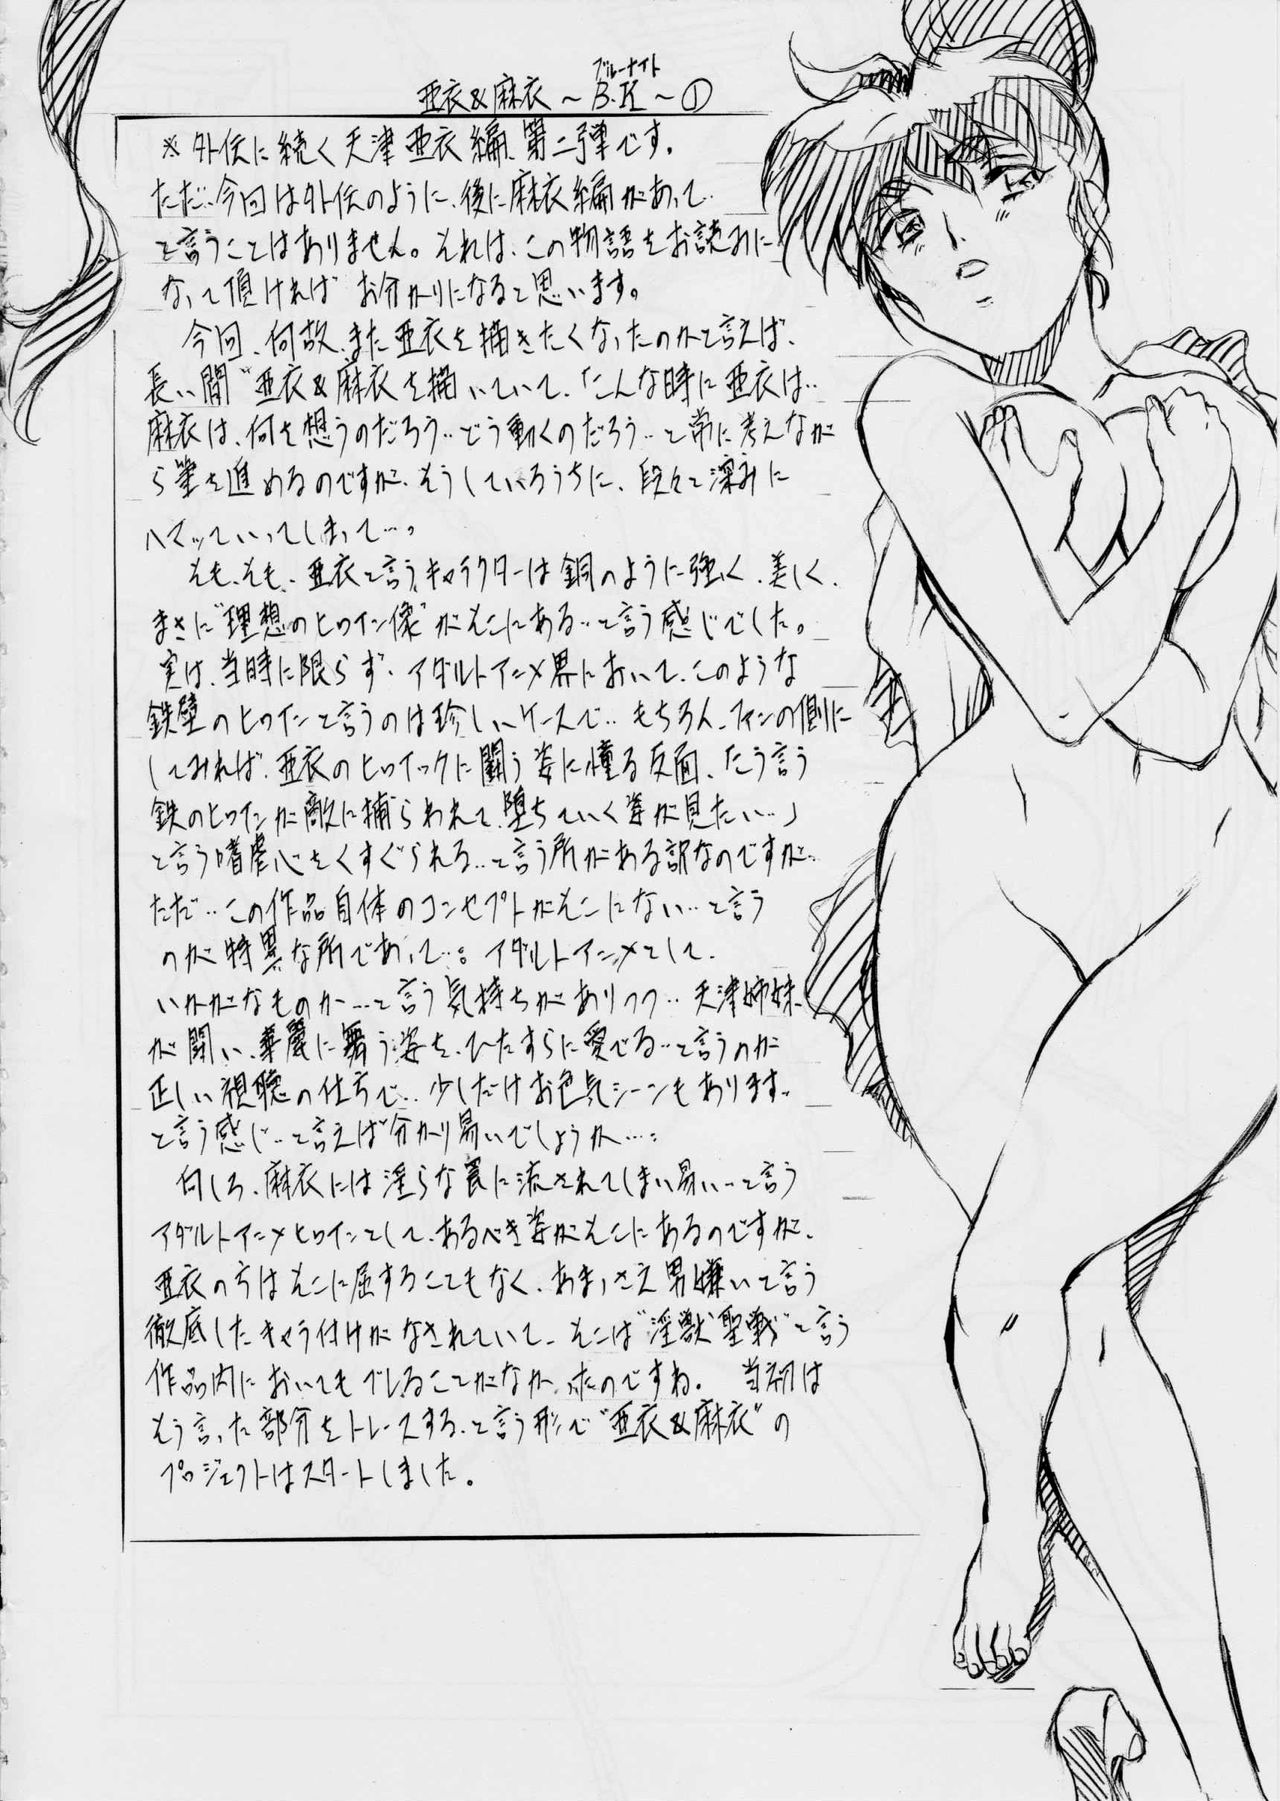 ブルーナイト
亜衣&麻衣～B.K～①
※外伝に続く天津亜衣編、第二弾です。
ただ‥今回は外伝のように、後に麻衣編があって‥
と言うことはありません。それは、この物語をお読みに
なって頂ければお分かりになると思います。
今回、何故、また亜衣を描きたくなったのかと言えば、
長い間“亜衣&麻衣を描いていて、こんな時に亜衣は‥
麻衣は、何を想うのだろう‥どう動くのだろう‥と常に考えなが
ら筆を進めるのですが、そうしているうちに、段々と深みに
ハマッていってしまって…。
そも、そも、亜衣と言うキャラクターは鋼のように強く、美しく、
まさに“理想のヒロイン像”がそこにある‥と言う感じでした。
実は、当時に限らず‥アダルトアニメ界において、このような
鉄壁のヒロインと言うのは珍しいケースで‥もちろん、ファンの側に
してみれば、亜衣のヒロイックに闘う姿に憧る反面、こう言う
鉄のヒロインが敵に捕らわれて、堕ちていく姿が見たい‥」
と言う嗜虐心をくすぐられる‥と言う所がある訳なのですが‥
ただ‥この作品自体のコンセプトがそこにない‥と言う
のが特異な所であって…。アダルトアニメとして、
いかがなものか…と言う気持ちがありつつ‥天津姉妹
が闘い、華麗に舞う姿を、ひたすらに愛でる‥と言うのが
正しい視聴の仕方で‥少しだけお色気シーンもあります。
と言う感じ‥と言えば分かり易いでしょうか…。
何しろ、麻衣には淫らな罠に流されてしまい易い‥と言う
アダルトアニメヒロインとして、あるべき姿がそこにあるのですが、
亜衣の方はそこに屈することもなく、あまっさえ男嫌いと言う
徹底したキャラ付けがなされていて、そこは“淫獣聖戦”と言う
作品内においてもブレることがなかったのですね。 当初は
そう言った部分をトレースする、と言う形で“亜衣&麻衣”の
プロジェクトはスタートしました。